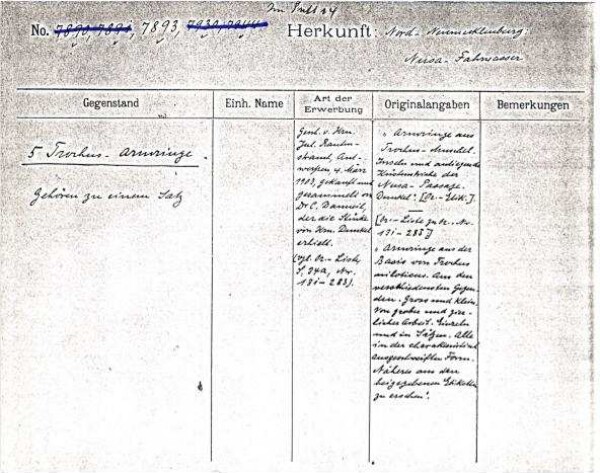 Im Pult 24
No. 7890, 7891, 7893, 7930, 7944 Herkunft: Nord-Neumecklenburg.
Nusa-Fahrwasser
Gegenstand Einh. Name Art der Erwerbung Originalangaben Bemerkungen
5 Trochus-Armringe
Gehören zu einem Satz
Gesch. v. Hrn.
Jul. Rauten-
strauch, Ant-
werpen, 4. März
1903, gekauft und
gesammelt von
Dr C. Danneil,
der die Stücke
von Hrn. Dunkel
erhielt.
(vgl. Or-Liste
S. 34a, Nr.
18i-283).
„Armringe aus
Trochus-Muschel.
Inseln und anliegende
Küstenstriche der
Nusa-Passage.
Dunkel." [Or-Etik.].
[Or-Liste zu Nr.
13i-283]
„Armringe aus der
Basis von Trochus
niloticus. Aus den
verschiedensten Gegen-
den. Gross und Klein,
von grober und zier-
licher Arbeit. Einzeln
und in Sätzen. Alle
in der charakteristisch
ausgeschweiften Form.
Näheres aus den
beigegebenen Etiketten
zu ersehen".